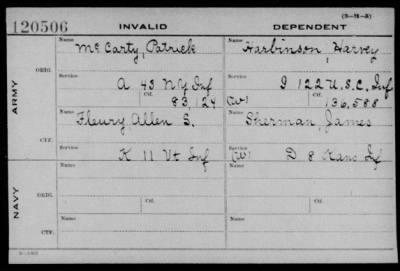 (3-M-3)
120506 INVALID DEPENDENT
Name Name
McCarty, Patrick Harbinson, Harvey
ORIG.
Service Service
A 43 N.Y. Inf I 122 U.S.C. Inf
Ctf. Ctf.
83,124 (W) 136,588
ARMY
Name Name
Fleury Allen S. Sherman, James
CTF.
Service Service
K 11 Vt Inf (W) D 8 Kans Inf
Name Name
ORIG.
NAVY
Name Name
CTF.